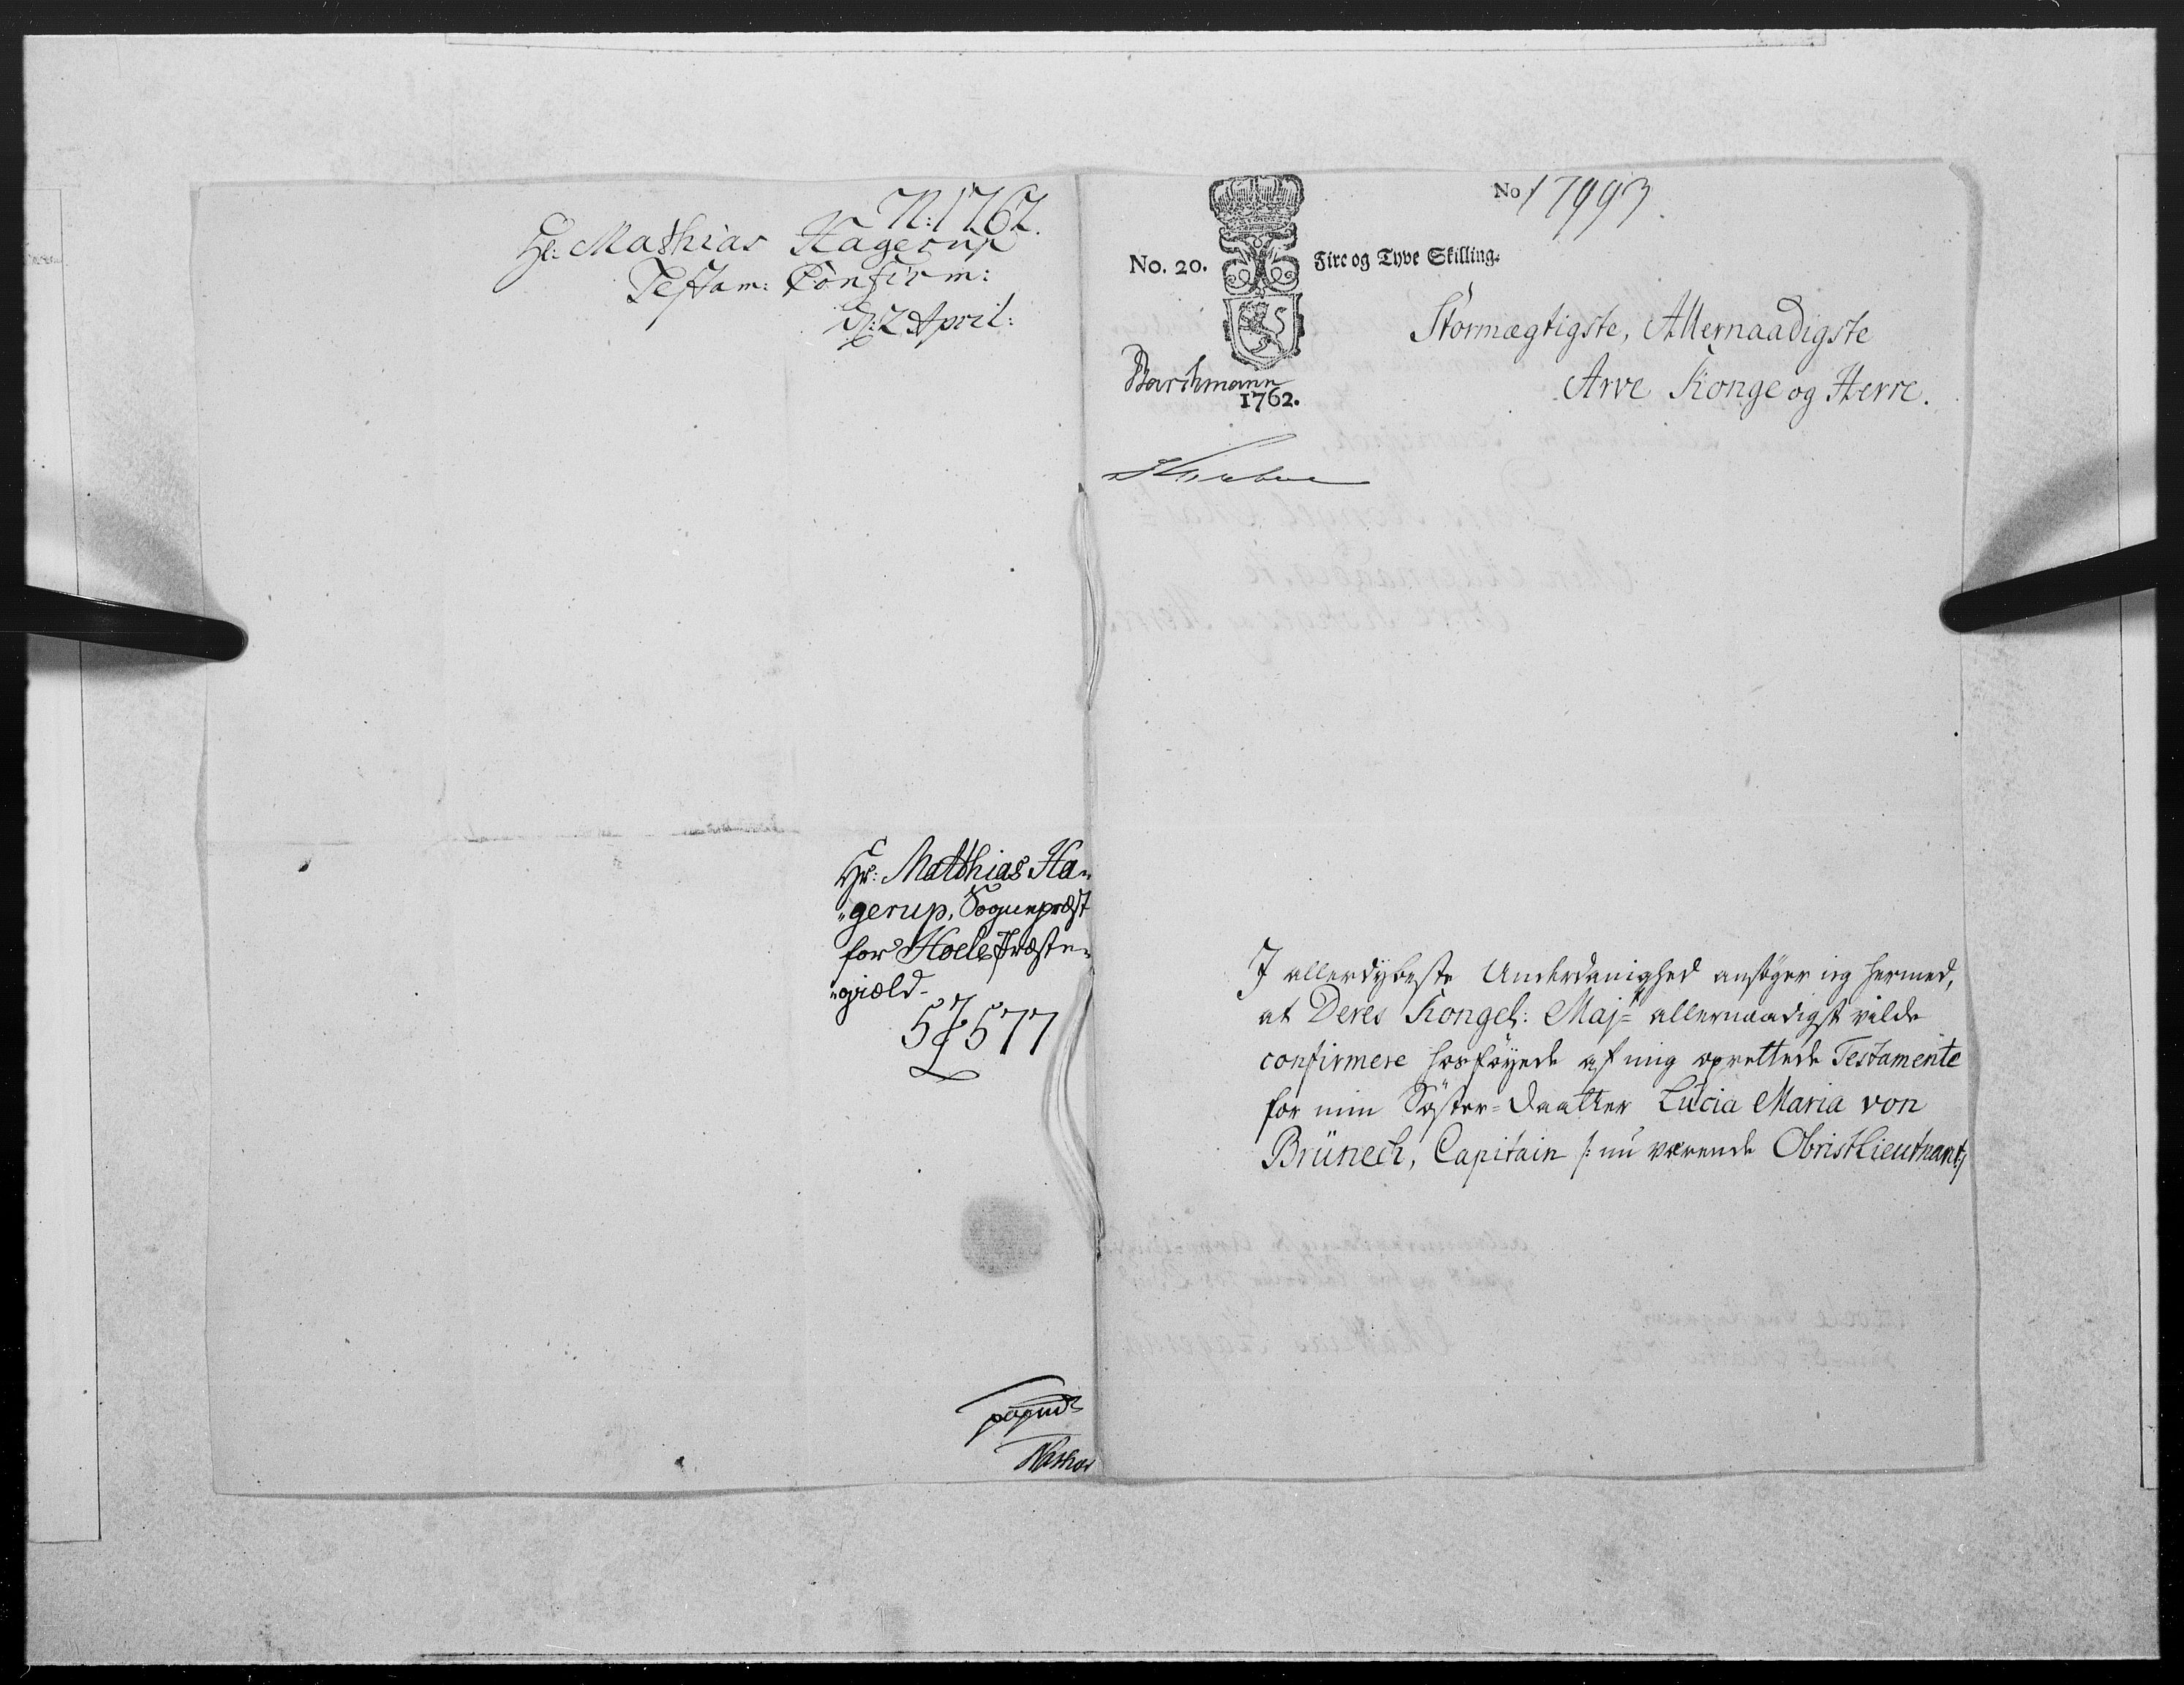 N: 1762.
Hr: Mathias Hagerup
Testam: Confirm:
d: 2 April:
Hr: Matthias Ha-
"gerup, Sognepræst
for Hoele Præste-
"gield-
577
No 17993.
No. 20.
Fire og Tyve Skilling.
Stormægtigste, Allernaadigste
Arve Konge og Herre.
Barchmann
1762.
I allerdybeste Underdanighed ansøger ieg hermed,
at Deres Kongel: Majt allernaadigst vilde
confirmere hosføyede af mig oprettede Testamente
for min Søster-Daatter Lucia Maria von
Brünech, Capitain /: nu værende ObristLieutnant,